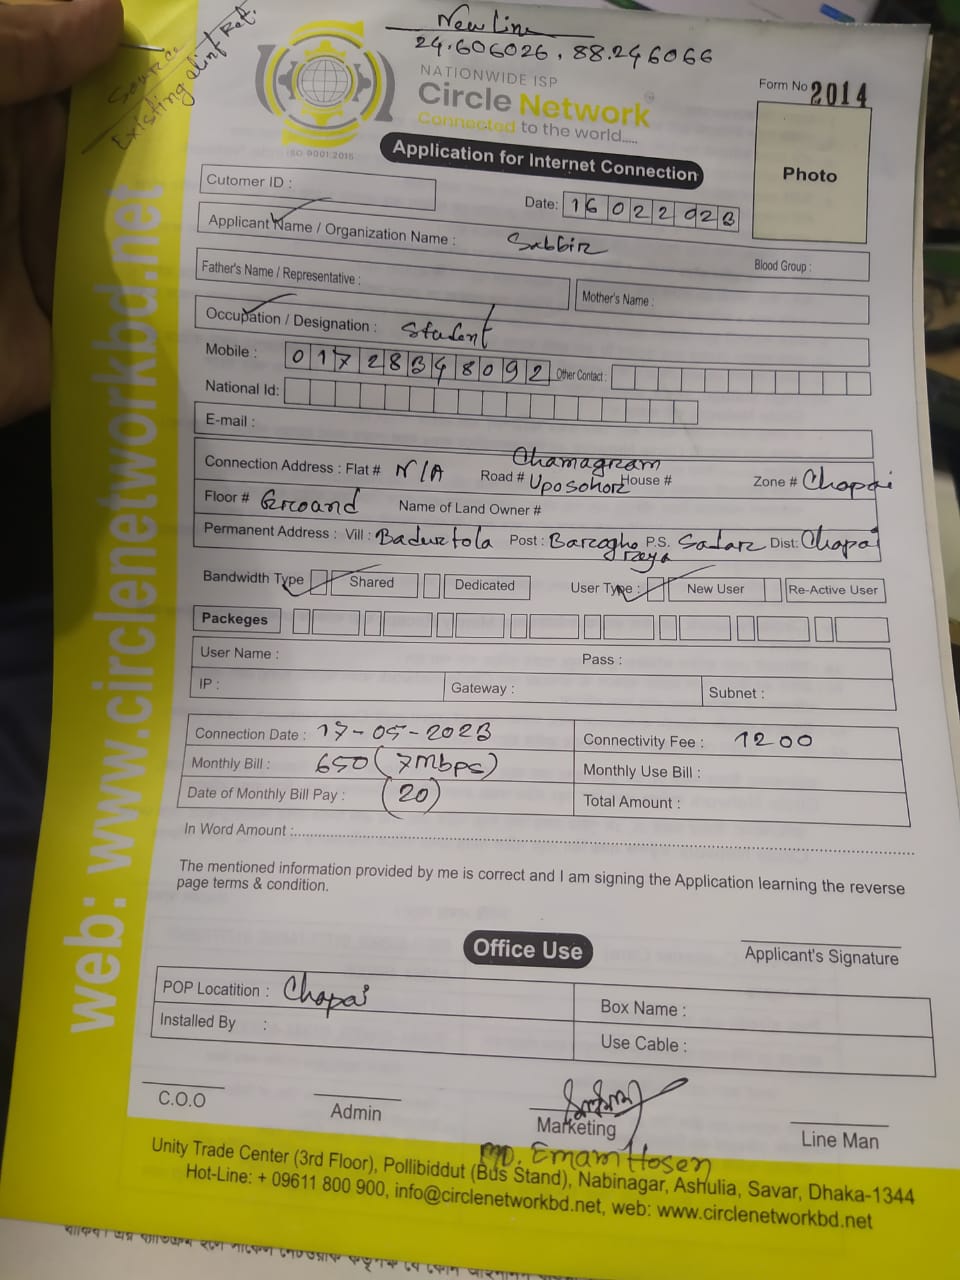 New Line
24.606026, 88.246066
Source
Existing Ret.
NATIONWIDE ISP
Circle Network
Connected to the world.....
ISO 9001:2015
Form No 2014
Photo
Application for Internet Connection
Cutomer ID :
Date: 16 02 2 023
Applicant Name / Organization Name : Sabbir
Blood Group :
Father's Name / Representative :
Mother's Name :
Occupation / Designation : Student
Mobile : 01728348092 Other Contact :
National Id:
E-mail :
Connection Address : Flat # N/A Road # Chamagram Uposohor House # Zone # Chapai
Floor # Ground Name of Land Owner #
Permanent Address : Vill : Badurtola Post : Barogho reya P.S. Sadar Dist: Chapai
Bandwidth Type Shared Dedicated User Type : New User Re-Active User
Packeges
User Name : Pass :
IP : Gateway : Subnet :
Connection Date : 17-05-2023 Connectivity Fee : 1200
Monthly Bill : 650 (7mbps) Monthly Use Bill :
Date of Monthly Bill Pay : (20) Total Amount :
In Word Amount :
The mentioned information provided by me is correct and I am signing the Application learning the reverse
page terms & condition.
Applicant's Signature
Office Use
POP Locatition : Chapai Box Name :
Installed By : Use Cable :
C.O.O Admin Marketing Line Man
MD. Emam Hosen
Unity Trade Center (3rd Floor), Pollibiddut (Bus Stand), Nabinagar, Ashulia, Savar, Dhaka-1344
Hot-Line: + 09611 800 900, info@circlenetworkbd.net, web: www.circlenetworkbd.net
web: www.circlenetworkbd.net